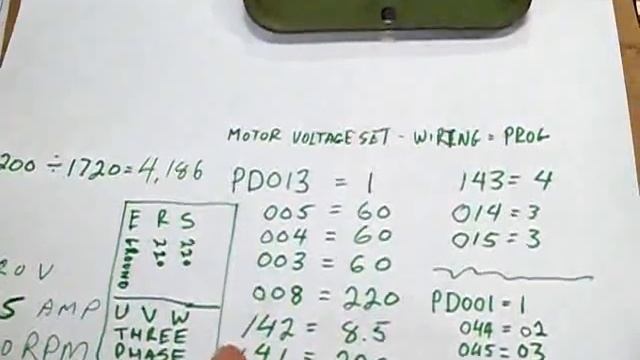 MOTOR VOLTAGE SET - WIRING = PROG
200 ÷ 1720 = 4,186
PD013 = 1
005 = 60
004 = 60
003 = 60
008 = 220
142 = 8.5
143 = 4
014 = 3
015 = 3
PD001 = 1
044 = 02
045 = 03
E R S
GROUND 220 220
U V W
THREE
PHASE
5 AMP
0 RPM